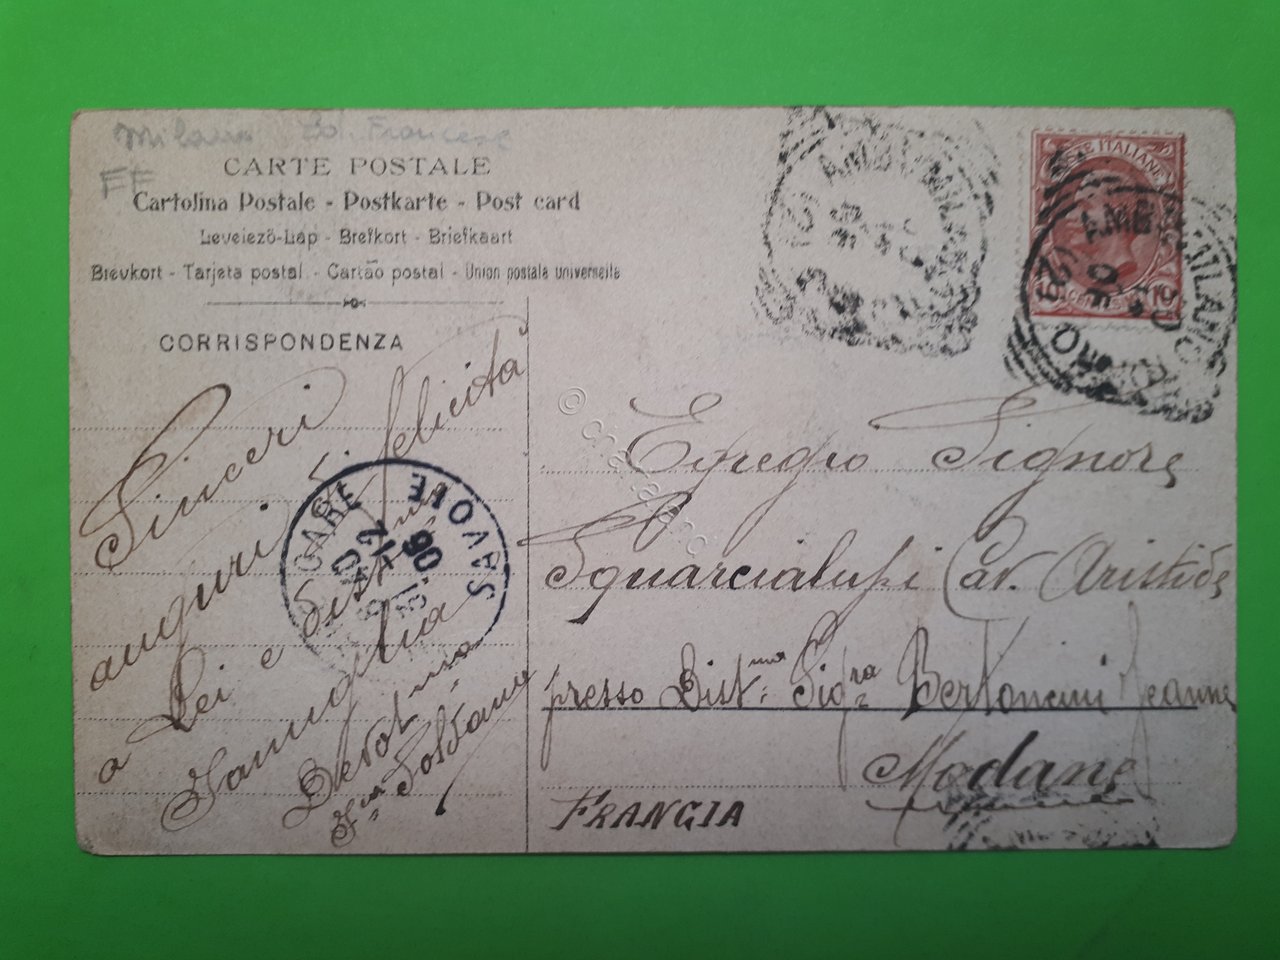 Milano Ed. Francese
FF
CARTE POSTALE
Cartolina Postale - Postkarte - Post card
Levelezö-Lap - Brefkort - Briefkaart
Brevkort - Tarjeta postal - Cartão postal - Union postale universelle
CORRISPONDENZA
Sinceri
auguri di felicità
a Lei e Dist.ma
Famiglia
Devot.ma
F.ca Soldano
GARE SAVOIE
12
06
POSTE ITALIANE
10 CENTESIMI 10
AMB MILANO
06
AMB MILANO
Egregio Signore
Squarcialupi Cav. Aristide
presso Dist.ma Sig.ra Bertoncini Jeanne
Modane
FRANCIA